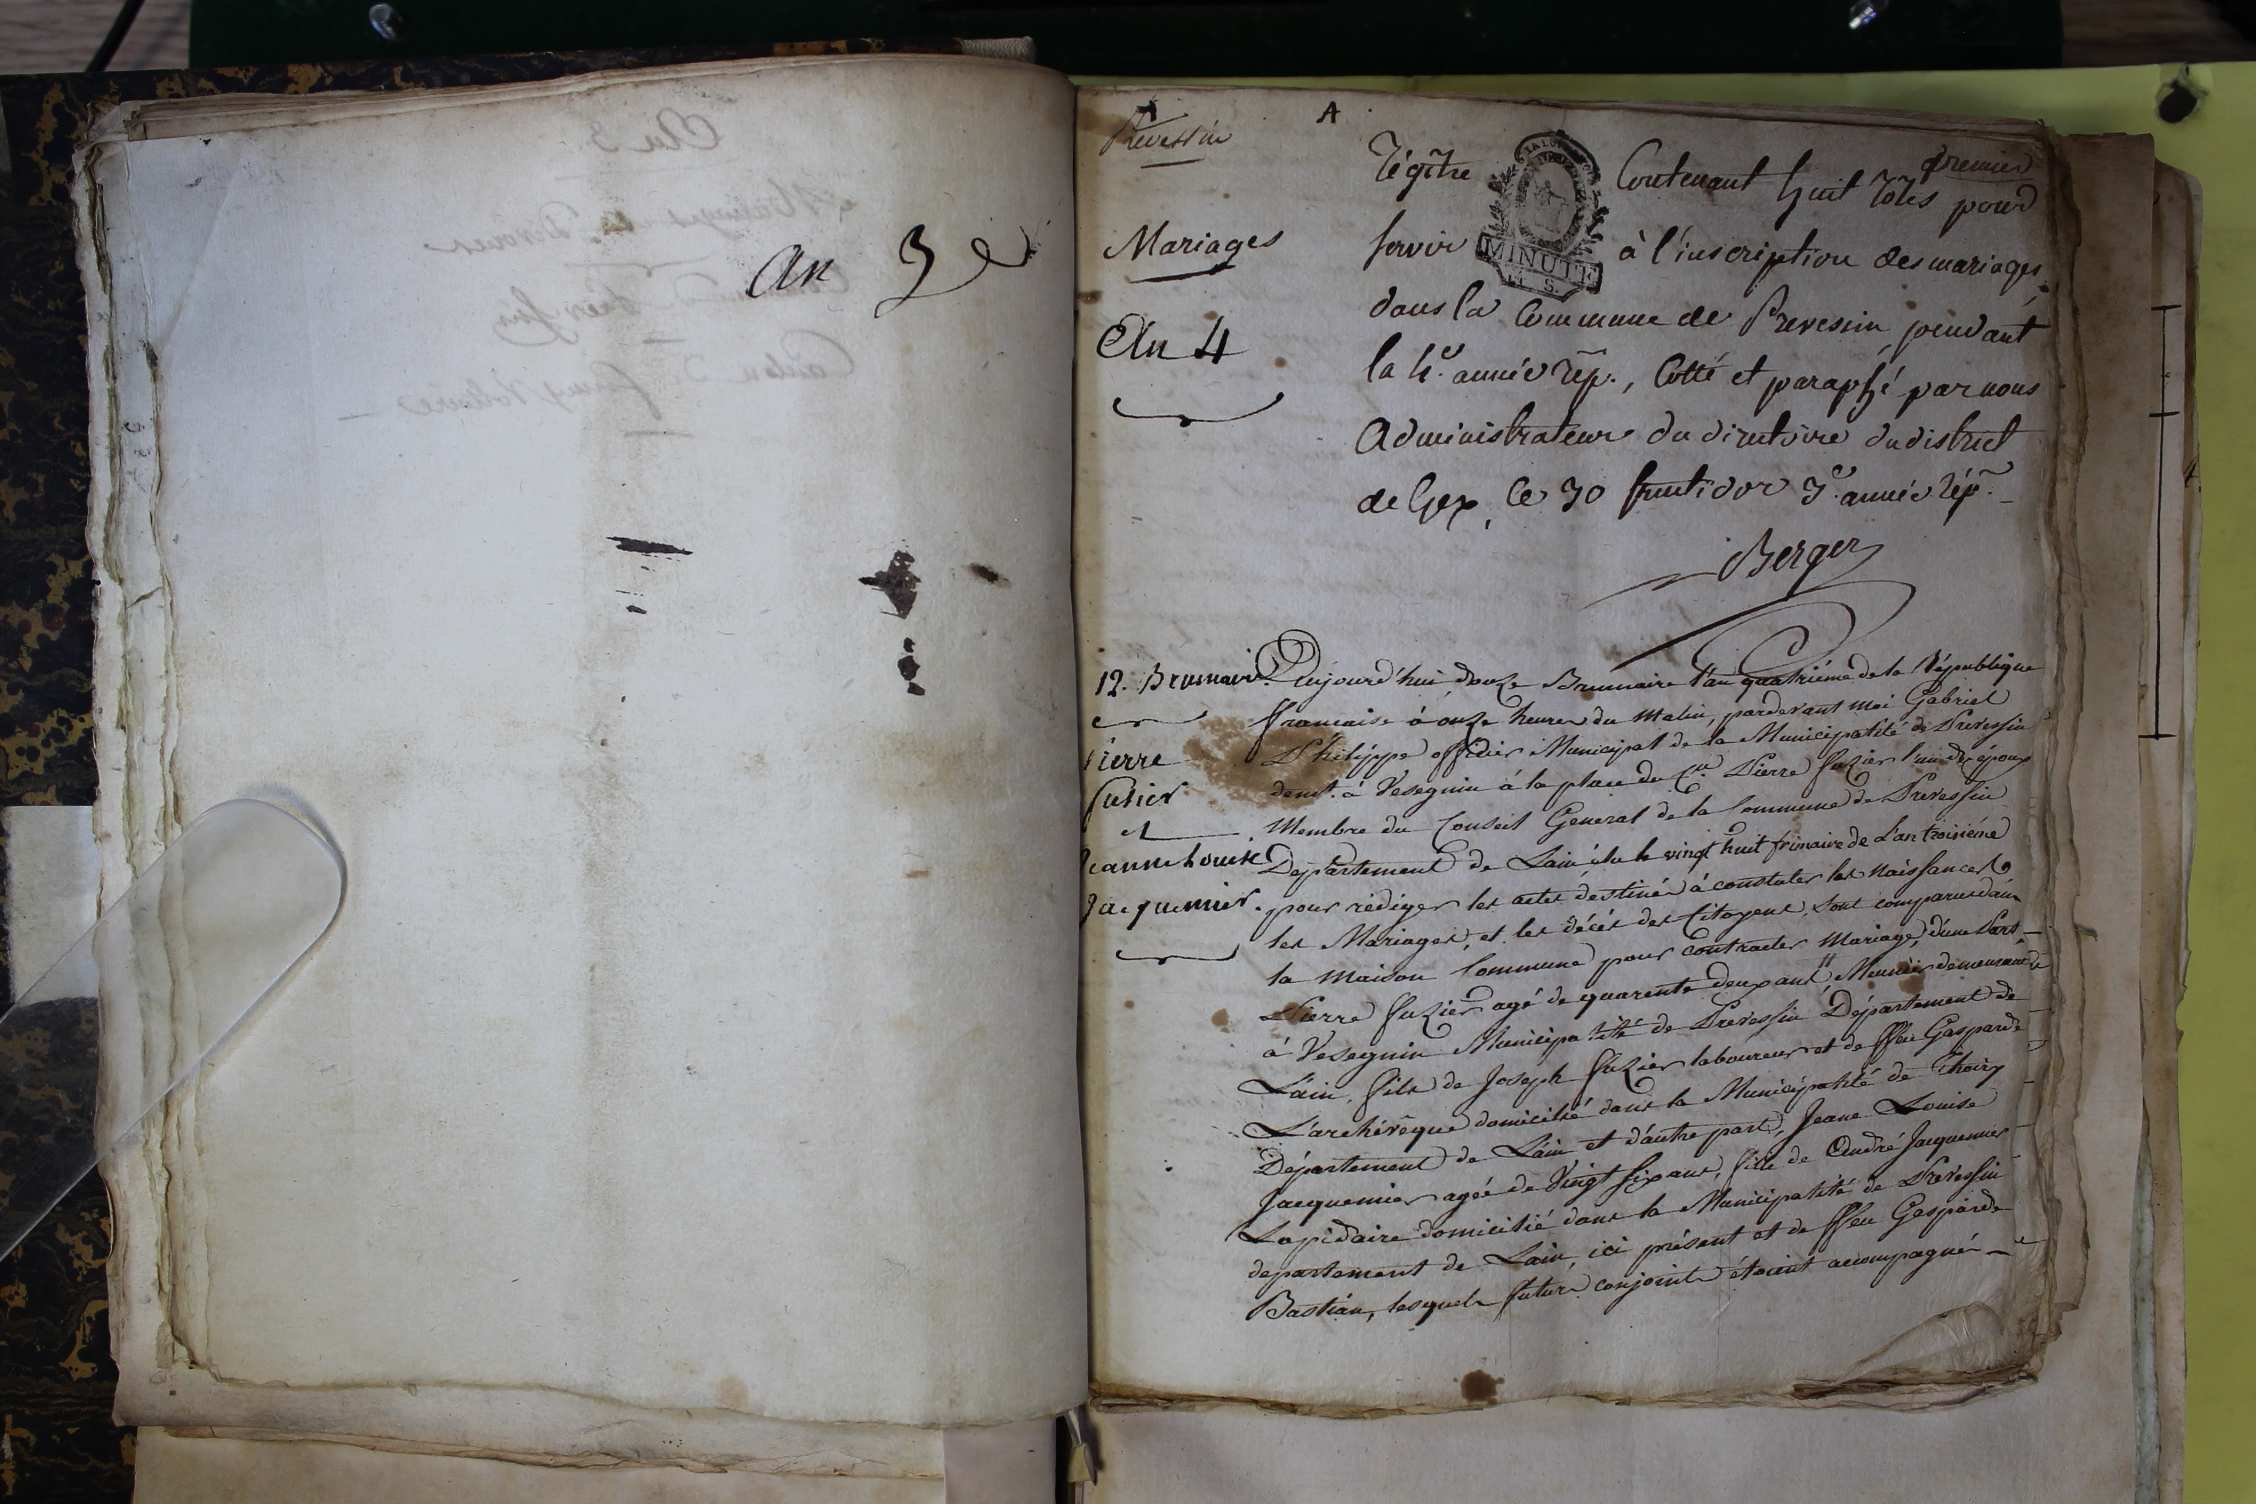 An 3e
Prevessin
A
premier
Mariages
An 4
Régître Contenant huit rôles pour
servir à l'inscription des mariages
dans la Commune de Prevessin, pendant
la 4e. année rép., Cotté et paraphé par nous
Administrateur du directoire du district
de Gex, ce 30 fructidor 3e. année rép.
Berger
MINUTE
12. Brumaire
Pierre
fusier
et
Jeanne Louise
Jacquemier.
Aujourd'hui douze Brumaire l'an quatriéme de la République
francaise à onze heures du matin, pardevant moi Gabriel
Philippe officier Municipal de la Municipalité de Prevessin
demt. à Vesegnin à la place du Cen. Pierre fuzier l'un des époux
Membre du Conseil General de la Commune de Prevessin
Département de Lain élu le vingt huit frimaire de L'an troisiéme
pour rédiger les actes destinés à constater les naissances
les Mariages, et les décés des Citoyens, sont comparus dans
la maison Commune pour contracter mariage, d'une Part,
Pierre fuzier agé de quarente deux ans, Meunier demeurant
à Vesegnin Municipalité de Prevessin Département de
L'ain, fils de Joseph fuzier laboureur et de ffeu Gasparde
L'archévêque domicilié dans la Municipalité de Thoiry
Département de L'ain et d'autre part, Jeane Louise
Jacquemier agée de Vingt six ans, fille de André Jacquemier
Lapidaire domicilié dans la Municipalité de Prevessin
departement de Lain, ici présent et de ffeu Gasparde
Bastian, lesquels futurs conjoints étoient accompagnés